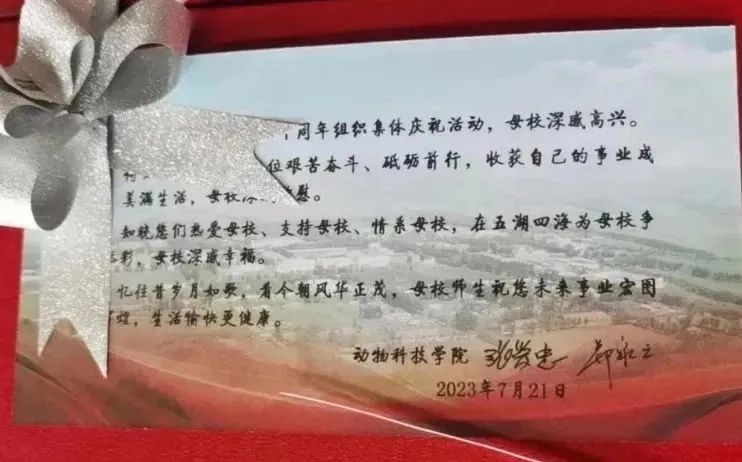 周年组织集体庆祝活动，母校深感高兴。
位艰苦奋斗、砥砺前行，收获自己的事业成
美满生活，母校深慰。
知晓您们热爱母校、支持母校、情系母校，在五湖四海为母校争
彩，母校深感幸福。
忆往昔岁月如歌，看今朝风华正茂，母校师生祝您未来事业宏图
煌，生活愉快更健康。
动物科技学院
2023年7月21日